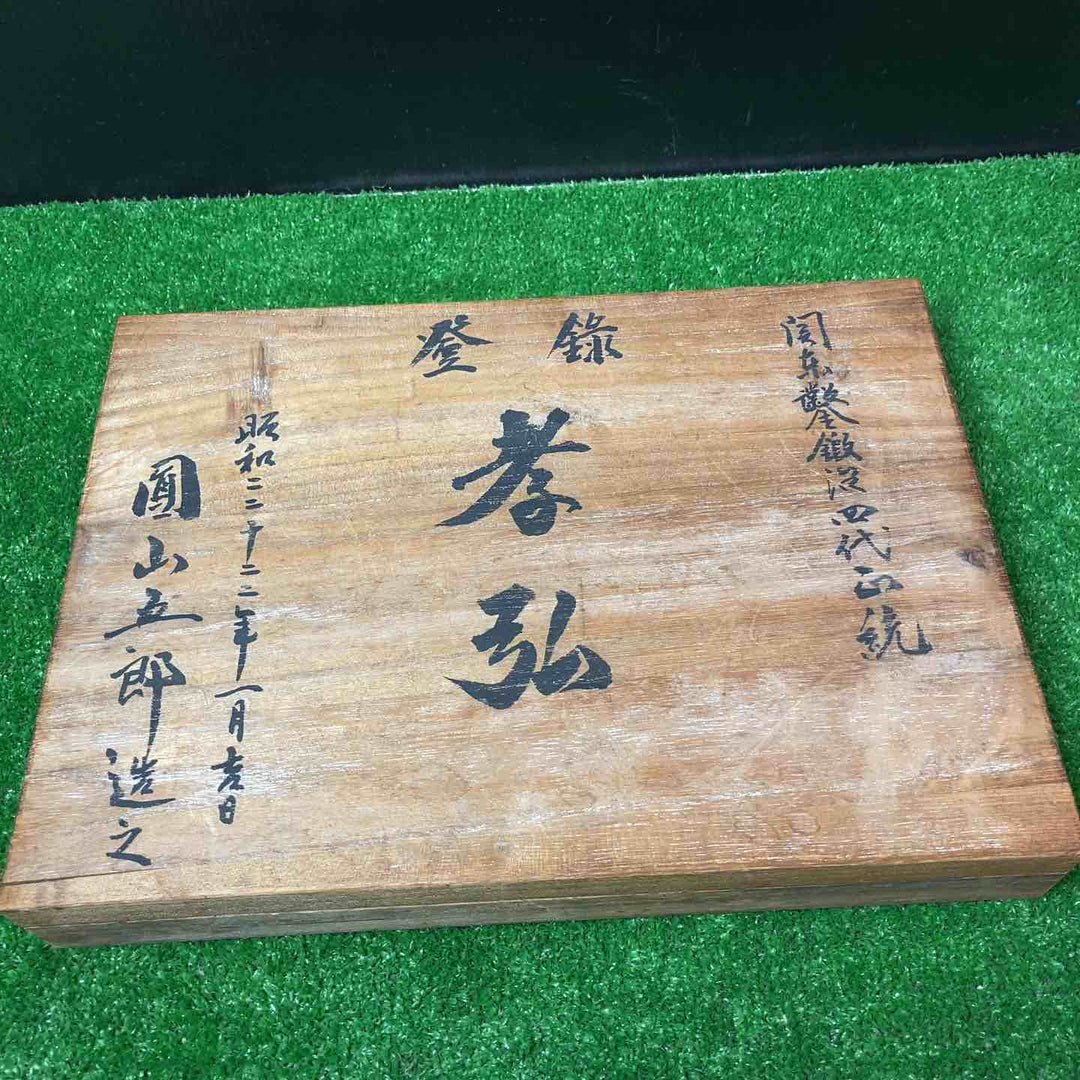 登錄
関東鑿鍛冶四代正統
孝弘
昭和三十三年一月吉日
圓山五郎造之